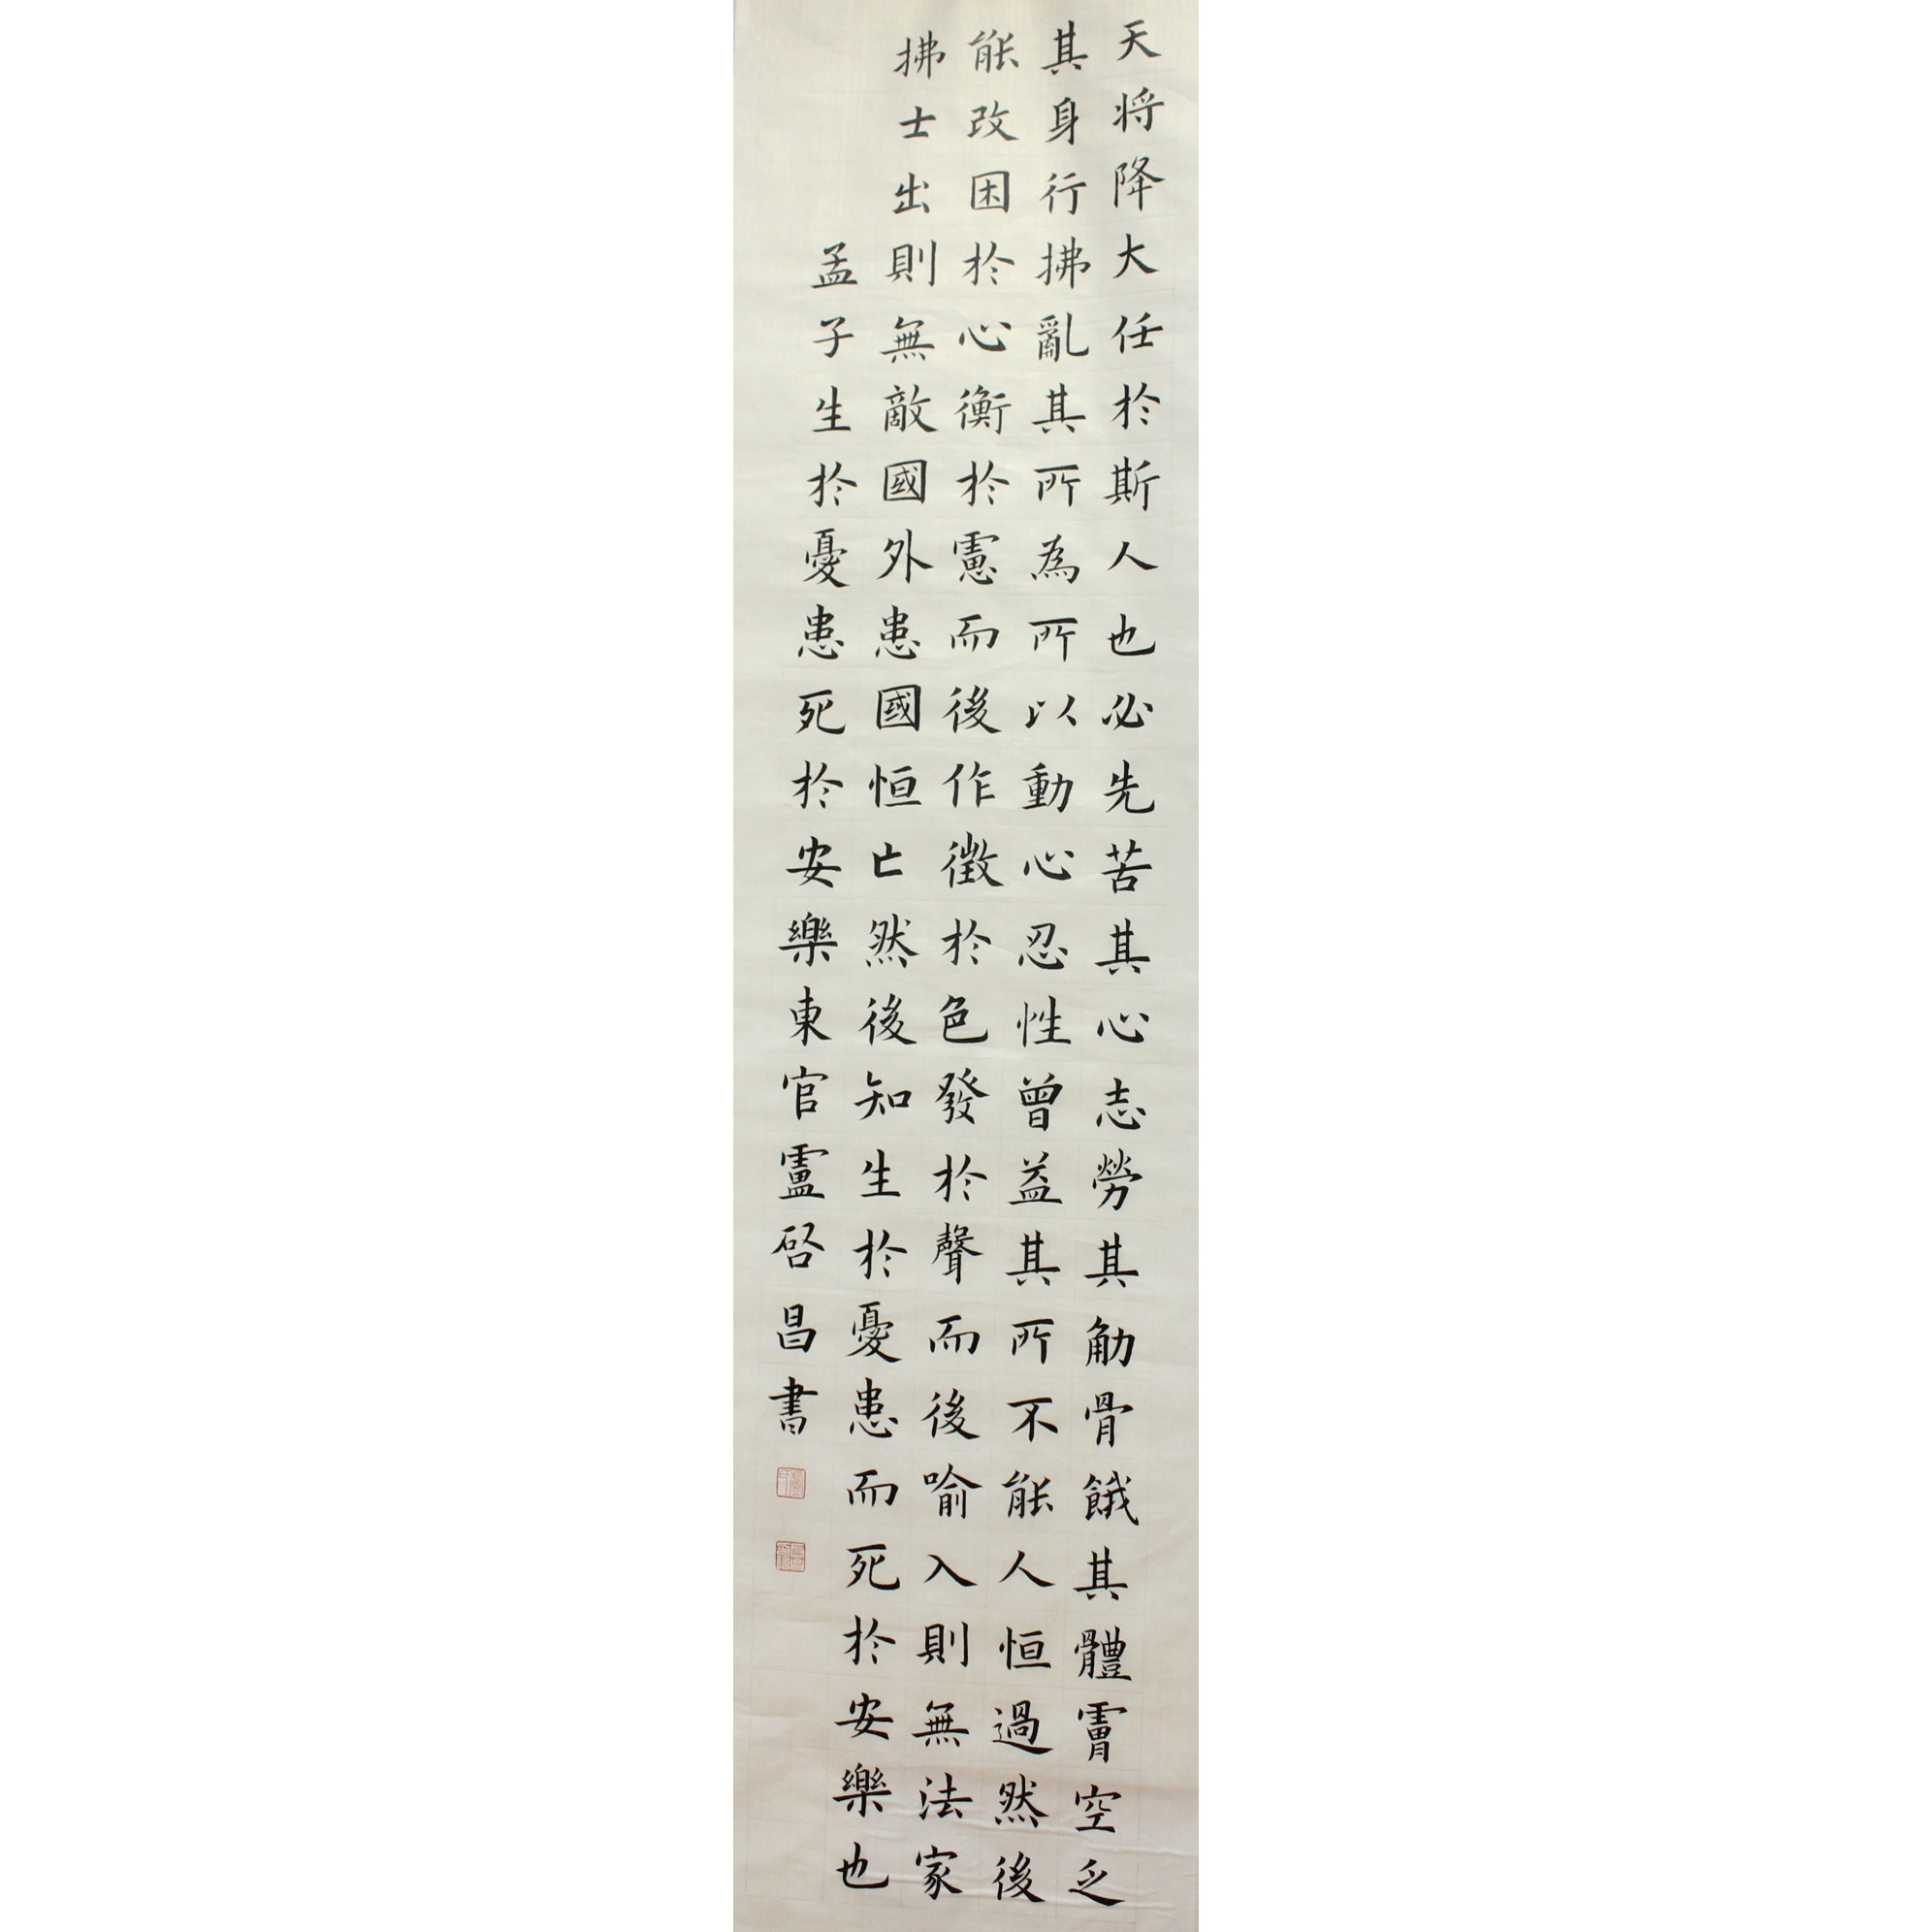 天将降大任於斯人也必先苦其心志勞其觔骨餓其體膚空乏
其身行拂亂其所為所以動心忍性曾益其所不能人恒過然後
能改困於心衡於慮而後作徵於色發於聲而後喻入則無法家
拂士出則無敵國外患國恒亡然後知生於憂患而死於安樂也
孟子生於憂患死於安樂東官盧啓昌書